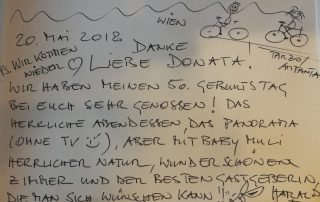 WIEN
20. MAI 2012
DANKE
PS. WIR KOMMEN WIEDER
LIEBE DONATA.
WIR HABEN MEINEN 50. GEBURTSTAG
BEI EUCH SEHR GENOSSEN! DAS
HERRLICHE ABENDESSEN, DAS PANORAMA
(OHNE TV), ABER MIT BABY MULI
HERRLICHER NATUR, WUNDERSCHÖNEM
ZIMMER UND DER BESTEN GASTGEBERIN,
DIE MAN SICH WÜNSCHEN KANN!!
HARALD